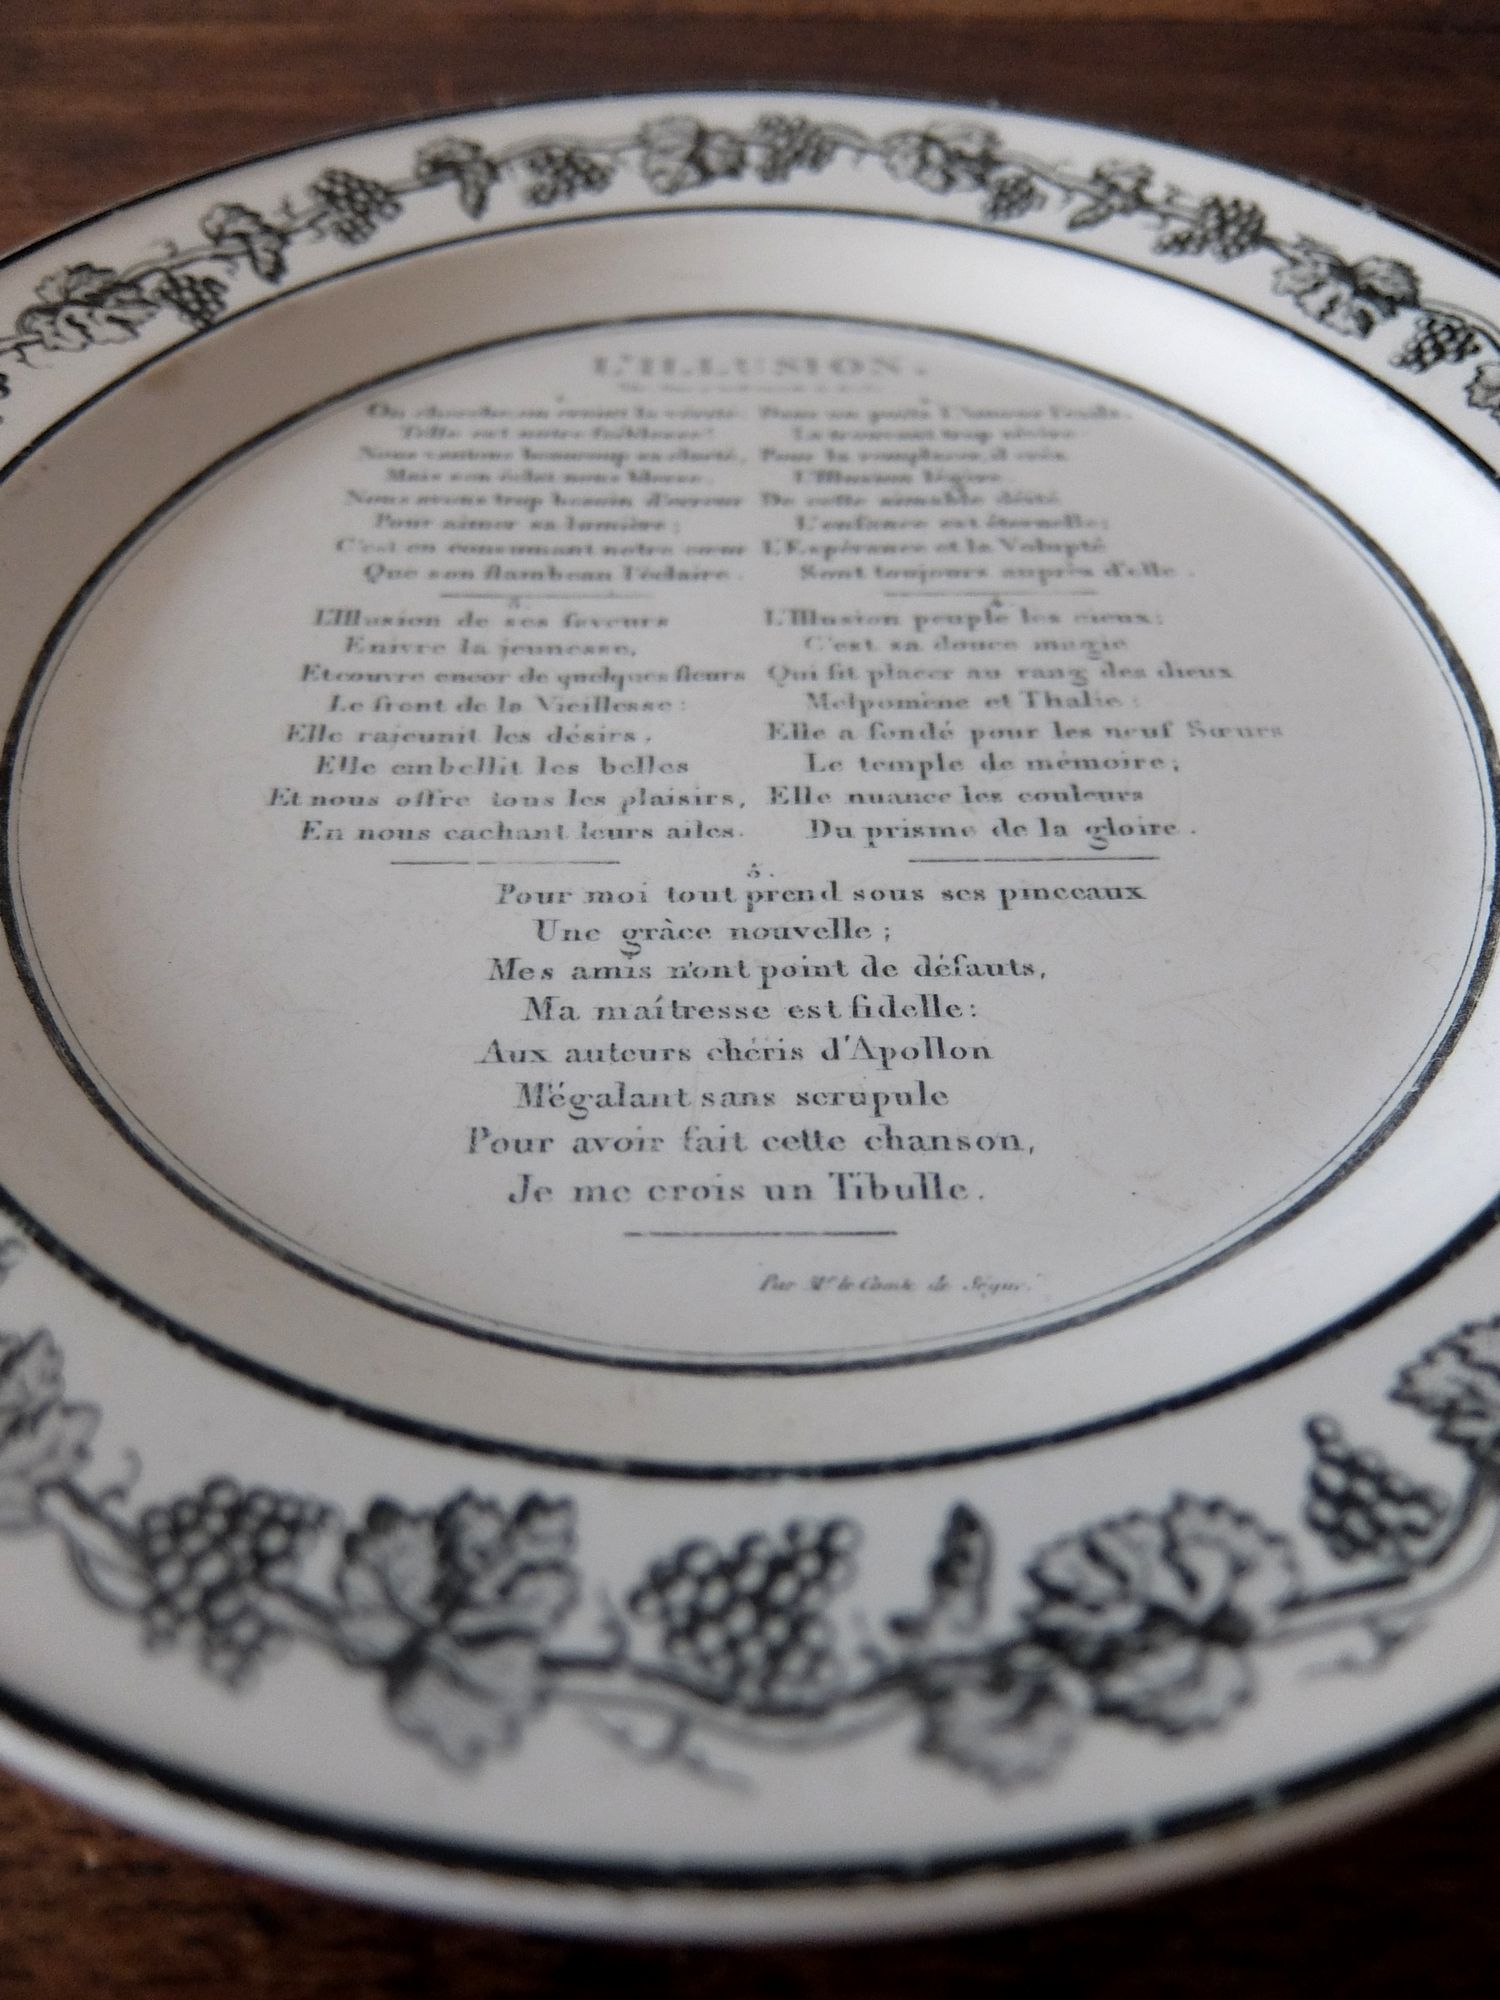 L'ILLUSION.
On cherche en vain la vérité
Telle est notre faiblesse!
Nous vantons beaucoup sa clarté,
Mais son éclat nous blesse.
Nous avons trop besoin d'erreur
Pour aimer sa lumière;
C'est en consumant notre cœur
Que son flambeau l'éclaire.
Dans un puits l'Amour l'exila
La trouvant trop sévère
Pour la remplacer, il créa
L'Illusion légère.
De cette aimable déité
L'enfance est éternelle;
L'Espérance et la Volupté
Sont toujours auprès d'elle.
3.
L'Illusion de ses faveurs
Enivre la jeunesse,
Et couvre encor de quelques fleurs
Le front de la Vieillesse:
Elle rajeunit les désirs,
Elle embellit les belles
Et nous offre tous les plaisirs,
En nous cachant leurs ailes.
4.
L'Illusion peuple les cieux;
C'est sa douce magie
Qui fit placer au rang des dieux
Melpomène et Thalie:
Elle a fondé pour les neuf Sœurs
Le temple de mémoire;
Elle nuance les couleurs
Du prisme de la gloire.
5.
Pour moi tout prend sous ses pinceaux
Une grâce nouvelle;
Mes amis n'ont point de défauts,
Ma maîtresse est fidelle:
Aux auteurs chéris d'Apollon
M'égalant sans scrupule
Pour avoir fait cette chanson,
Je me crois un Tibulle.
Par Mr le Comte de Ségur.